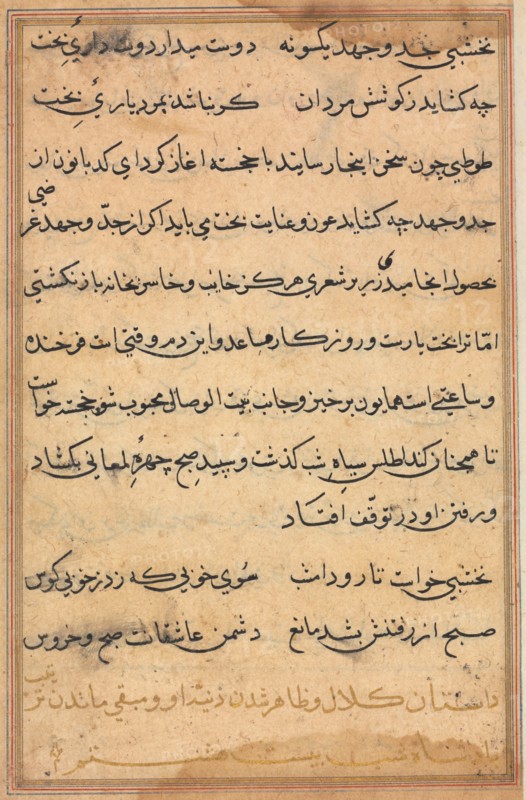 نخشبی جد و جهد یکسونه دوست میدارد دوست داریٔ بخت
چه کشاید ز کوشش مردان کر نباشد بمرد یاریٔ بخت
طوطی چون سخن اینجا رسانید با خجسته اغاز کرد ای کدبانو از ان
جد و جهد چه کشاید عون و عنایت بخت می باید اکر از جدّ و جهد غرضی
بحصول انجامیدی زریر شعری هرکز خایب و خاسر بخانه باز نکشتی
امّا ترا بخت یارست و روزکار مساعد و این دم وقتی است فرخنده
و ساعتی است همایون برخیز و جانب بیت الوصال محبوب شو خجسته خواست
تا همچنان کند اطلس سیاه شب کذشت و سپید صبح چهره لمعانی بکشاد
و رفتن او در توقّف افتاد
نخشبی خواست تا رود امشب سوی خوبی که زد ز خوبی کوس
صبح از رفتنش بشد مانع دشمن عاشقانست صبح و خروس
داستان کلال و ظاهر شدن او و مبقی ماندن
شب بیست